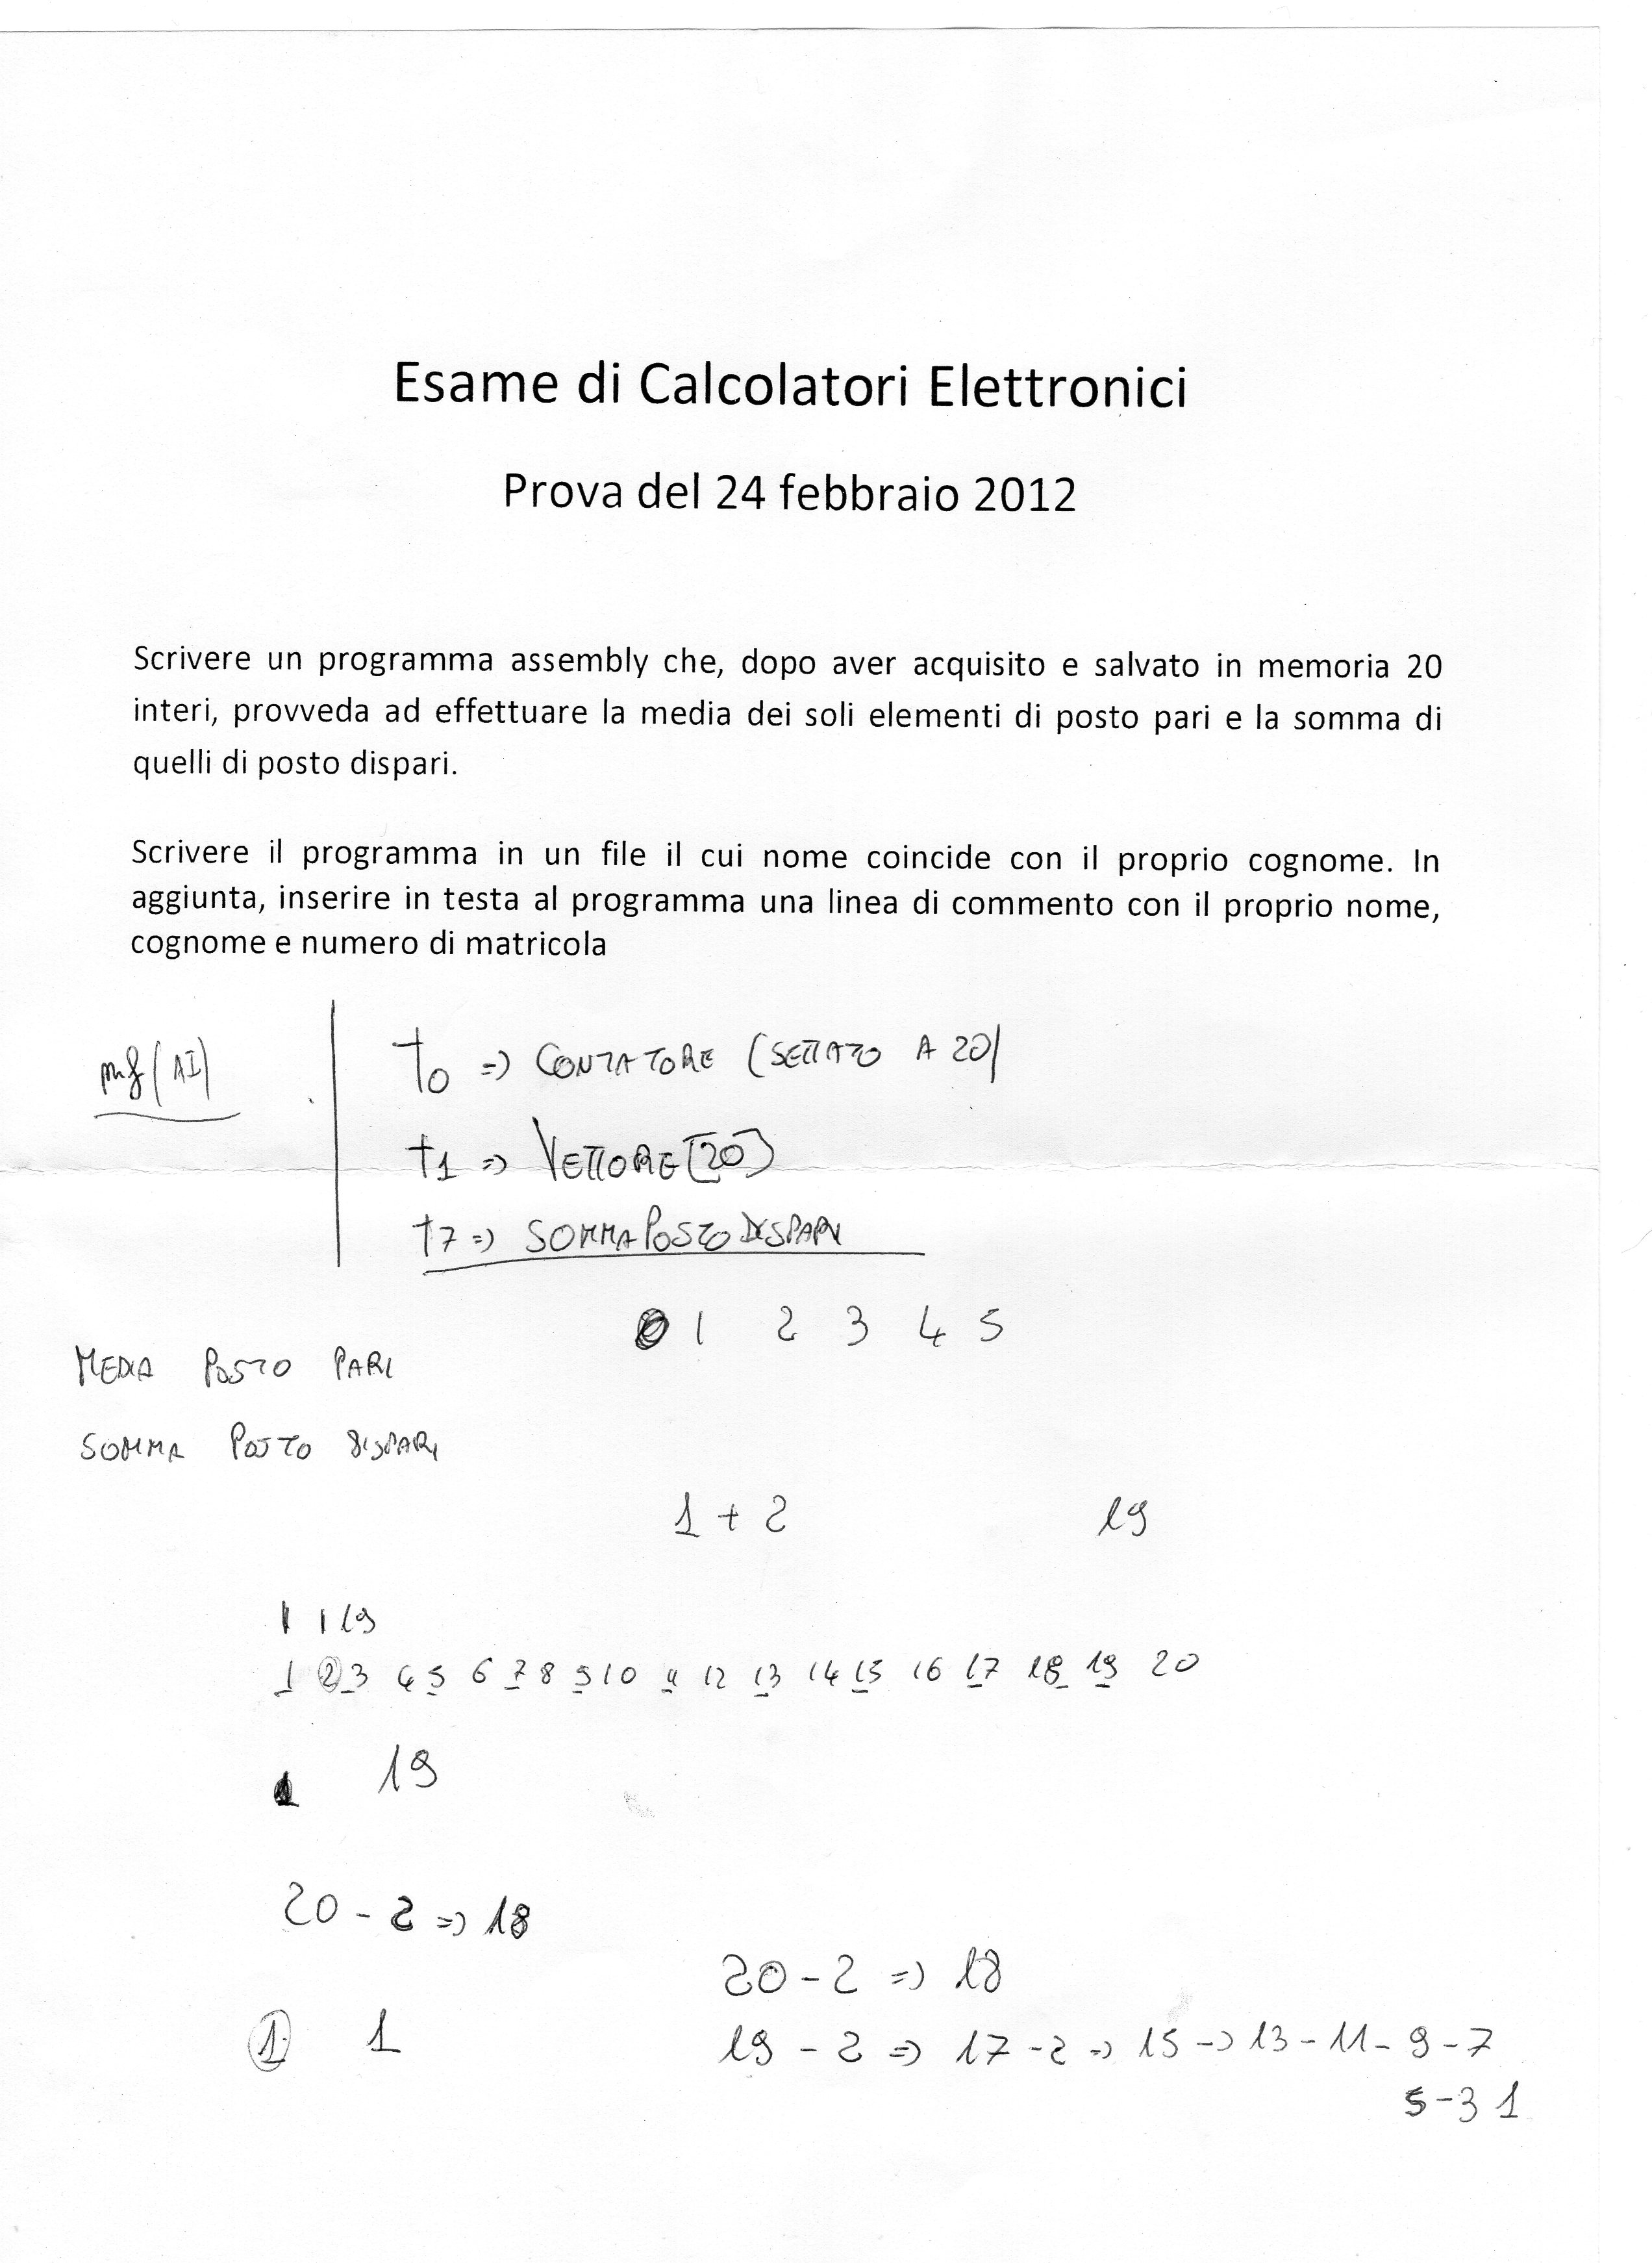 Esame di Calcolatori Elettronici
Prova del 24 febbraio 2012
Scrivere un programma assembly che, dopo aver acquisito e salvato in memoria 20
interi, provveda ad effettuare la media dei soli elementi di posto pari e la somma di
quelli di posto dispari.
Scrivere il programma in un file il cui nome coincide con il proprio cognome. In
aggiunta, inserire in testa al programma una linea di commento con il proprio nome,
cognome e numero di matricola
(AI)
t0 => CONTATORE (SETTATO A 20)
t1 => VETTORE[20]
t7 => SOMMA POSTO DISPARI
0 1 2 3 4 5
MEDIA POSTO PARI
SOMMA POSTO DISPARI
1 + 2 19
1 1 19
1 2 3 4 5 6 7 8 9 10 11 12 13 14 15 16 17 18 19 20
1 19
20 - 2 => 18
20 - 2 => 18
1 1
19 - 2 => 17 - 2 => 15 -> 13 - 11 - 9 - 7
5 - 3 1